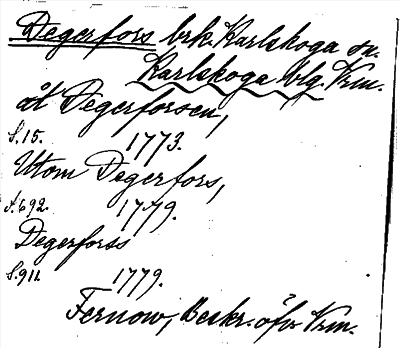 Degerfors brk. Karlskoga sn.
Karlskoga blg. Vrm.
åt Degerforsen,
s.15. 1773.
Utom Degerfors,
s.692. 1779.
Degerforss
s.911. 1779.
Fernow, Beskr. öfv. Vrm.